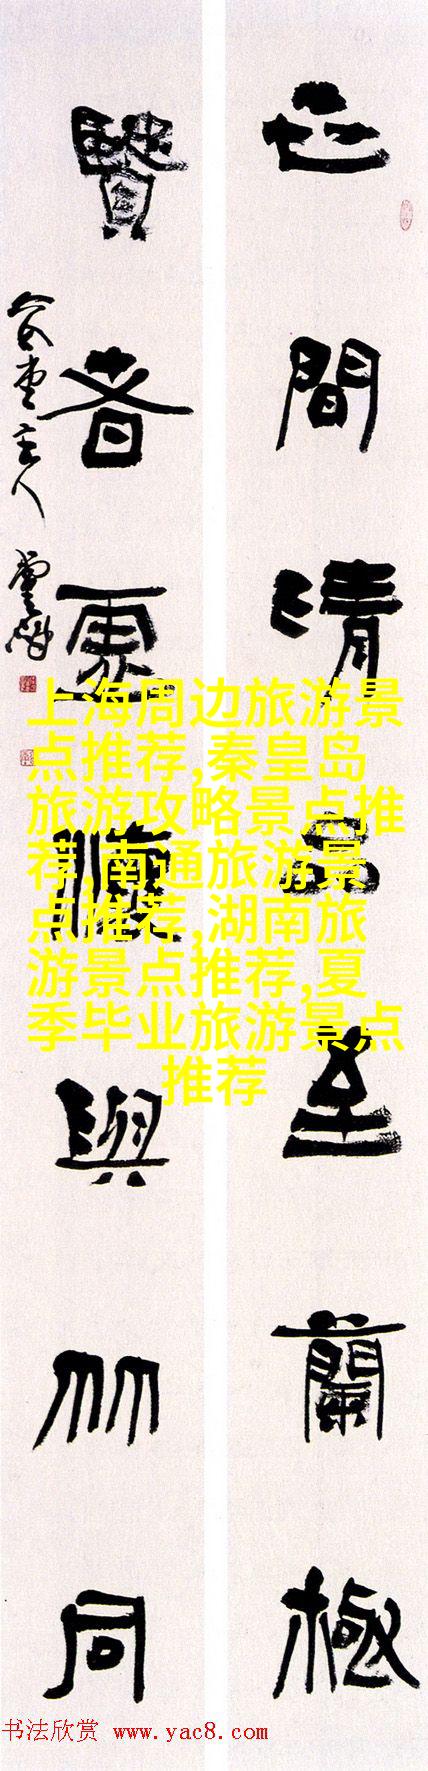 世間清品至蘭極
賢者虛懷與竹同
主人
上海周边旅游景
点推荐,秦皇岛
旅游攻略景点推
荐,南通旅游景
点推荐,湖南旅
游景点推荐,夏
季毕业旅游景点
推荐
书法欣赏 www.yac8.com